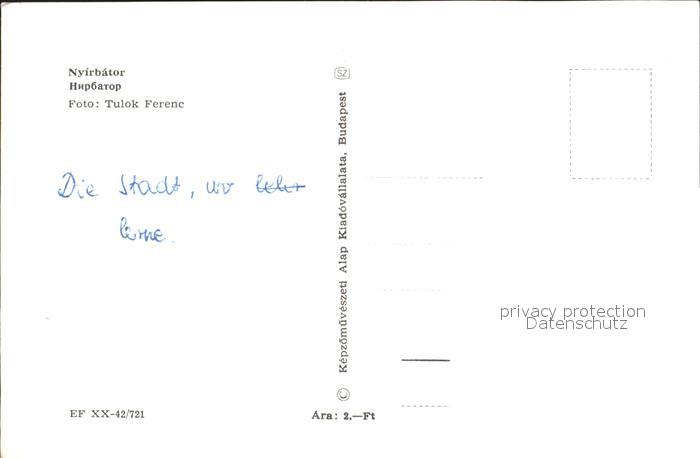 Nyírbátor
Нирбатор
Foto: Tulok Ferenc
Die Stadt, wo
lerne.
EF XX-42/721
SZ
Képzőművészeti Alap Kiadóvállalata, Budapest
©
Ára: 2,—Ft
privacy protection
Datenschutz